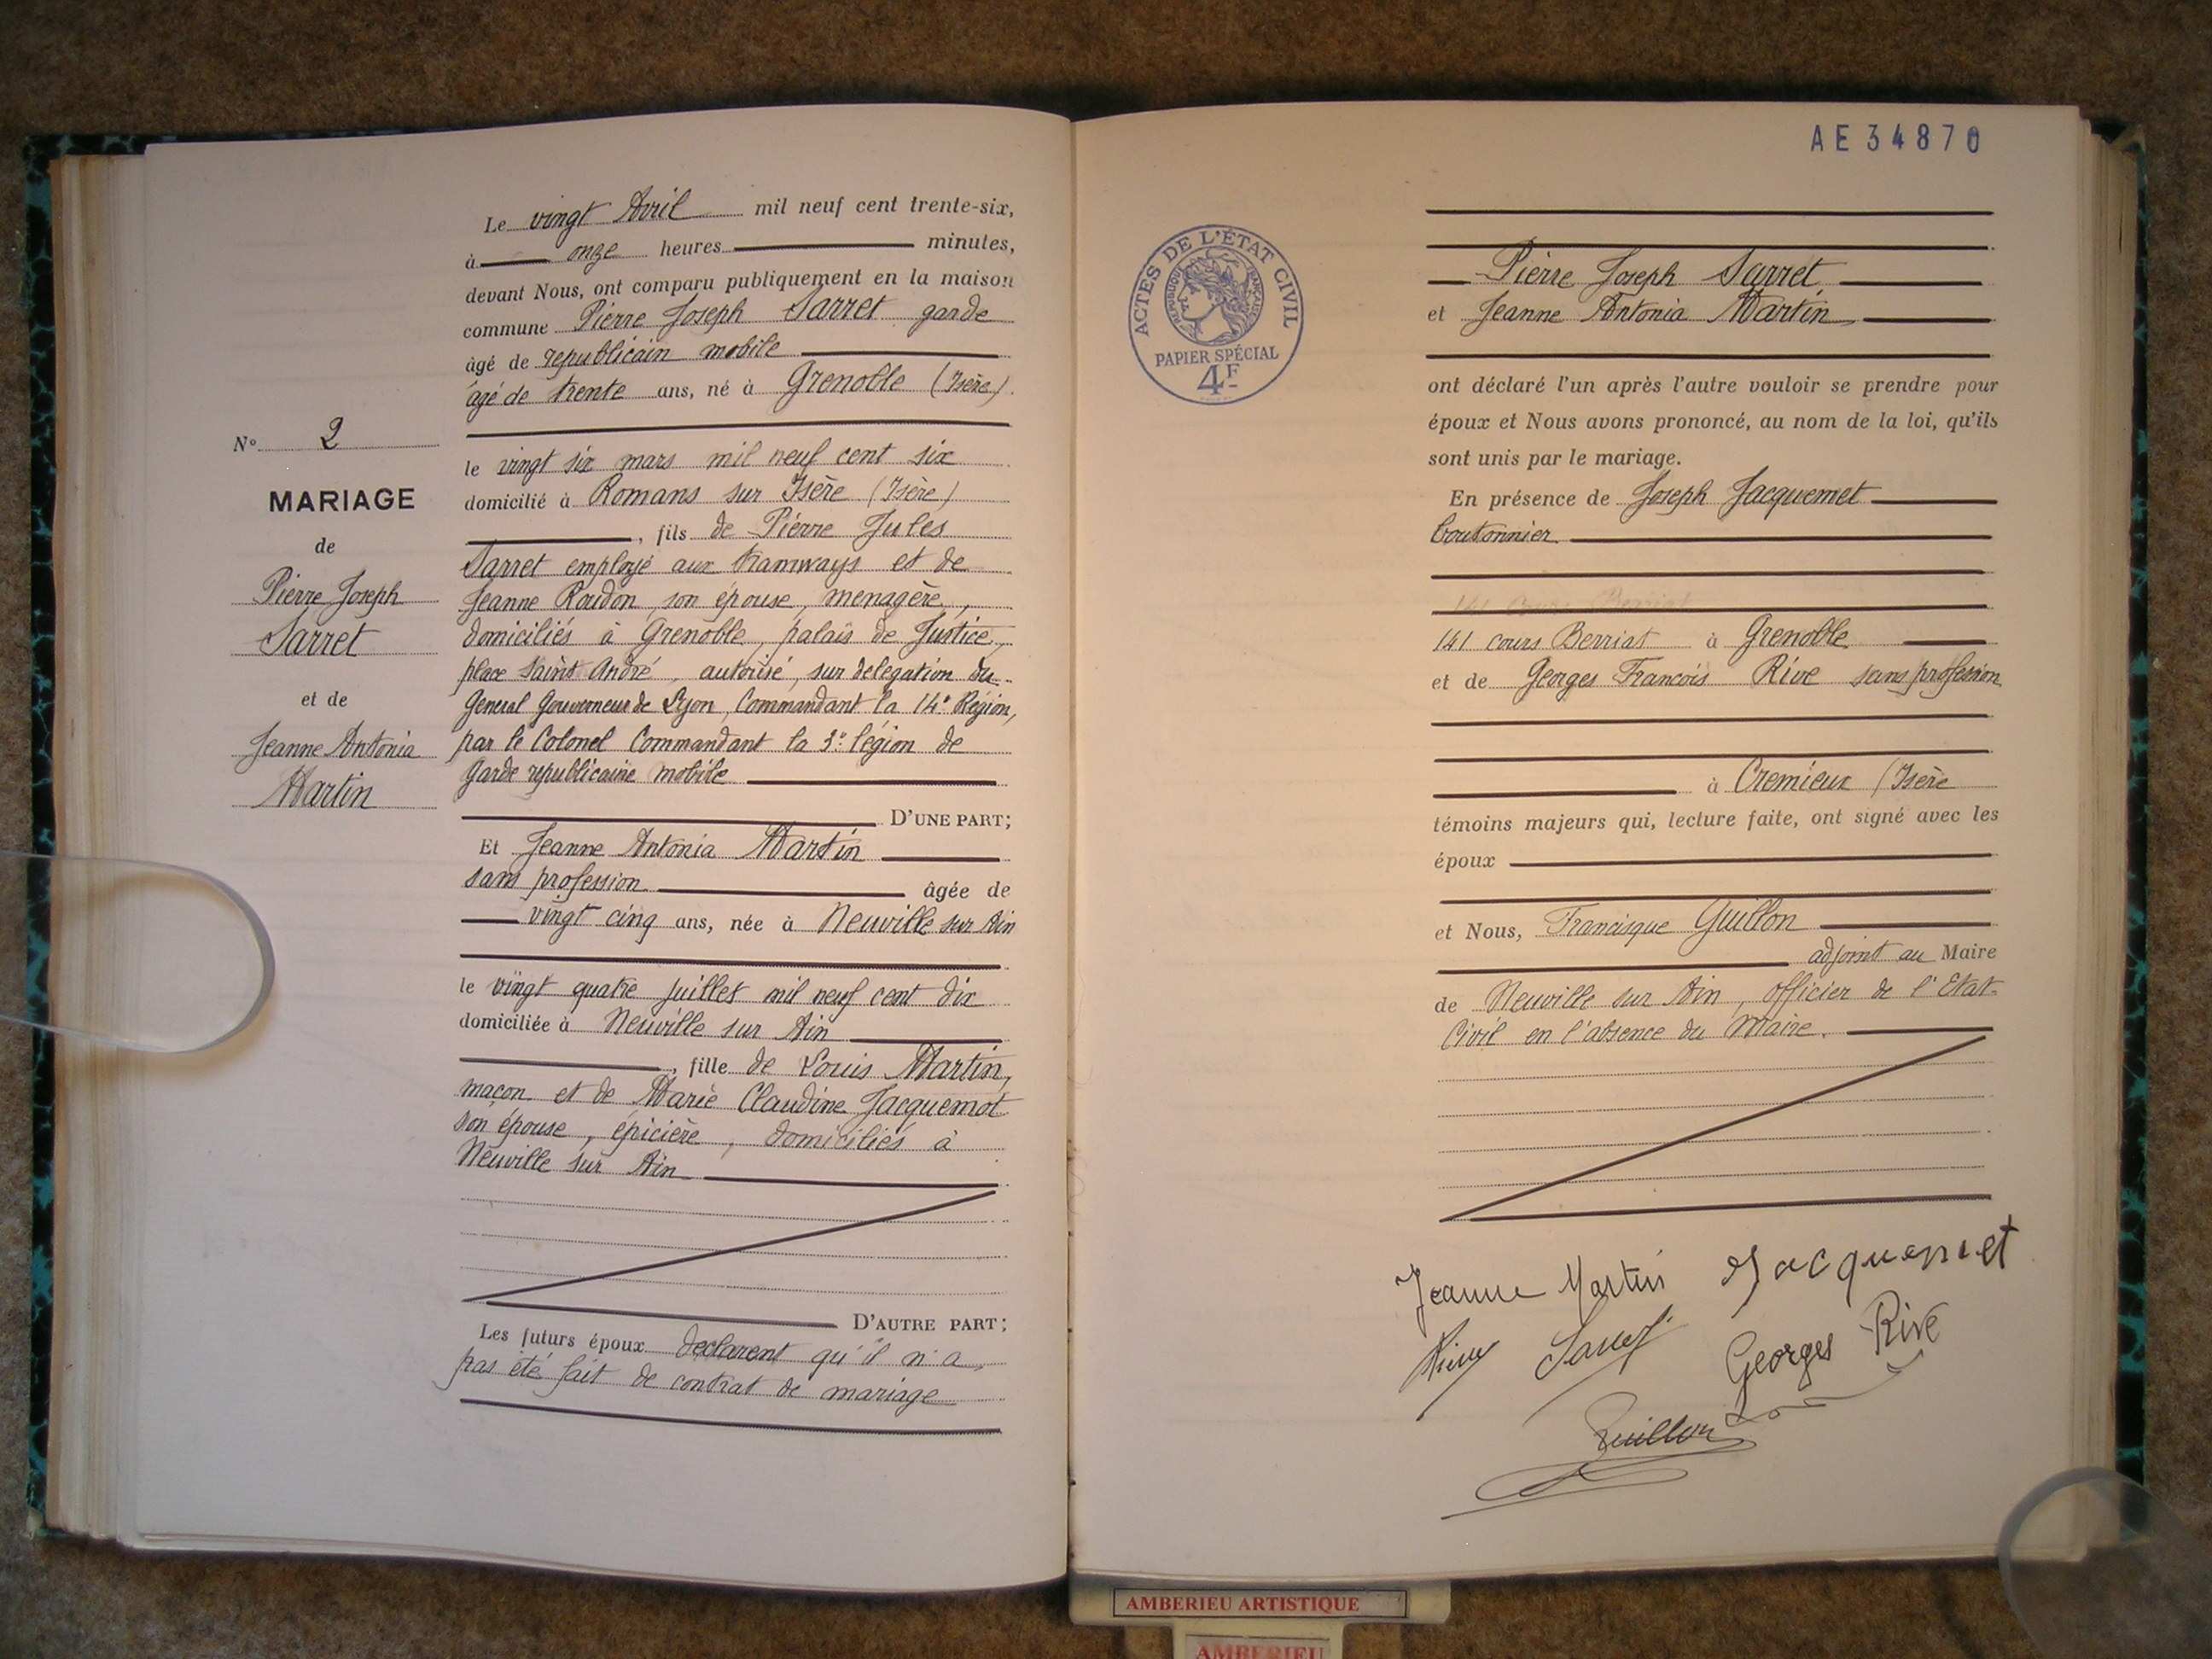 Le vingt Avril mil neuf cent trente-six,
à onze heures minutes,
devant Nous, ont comparu publiquement en la maison
commune Pierre Joseph Sarret garde
âgé de republicain mobile
âgé de trente ans, né à Grenoble (Isère)
N° 2
le vingt six mars mil neuf cent six
MARIAGE
domicilié à Romans sur Isère (Isère)
, fils de Pierre Jules
de
Sarret employé aux tramways et de
Pierre Joseph
Jeanne Roudon, son épouse, menagère,
Sarret
domiciliés à Grenoble, palais de Justice,
place Saint André, autorisé, sur delegation du
et de
General Gouverneur de Lyon, Commandant la 14e Région,
Jeanne Antonia
par le Colonel Commandant la 3e légion de
Martin
Garde republicaine mobile
D'UNE PART;
Et Jeanne Antonia Martin
sans profession âgée de
vingt cinq ans, née à Neuville sur Ain
le vingt quatre juillet mil neuf cent dix
domiciliée à Neuville sur Ain
, fille de Louis Martin,
maçon et de Marie Claudine Jacquemot
son épouse, épicière, domiciliés à
Neuville sur Ain
D'AUTRE PART;
Les futurs époux declarent qu'il n'a
pas été fait de contrat de mariage
AE34870
ACTES DE L'ÉTAT CIVIL
RÉPUBLIQUE FRANÇAISE
PAPIER SPÉCIAL
4F
Pierre Joseph Sarret
et Jeanne Antonia Martin
ont déclaré l'un après l'autre vouloir se prendre pour
époux et Nous avons prononcé, au nom de la loi, qu'ils
sont unis par le mariage.
En présence de Joseph Jacquemet
boutonnier
141 cours Berriat
141 cours Berriat à Grenoble
et de Georges François Rive sans profession
à Cremieux (Isère
témoins majeurs qui, lecture faite, ont signé avec les
époux
et Nous, Francisque Guillon
adjoint au Maire
de Neuville sur Ain, officier de l'Etat-
Civil en l'absence du Maire.
Jeanne Martin Jacquemet
Pierre Sarret Georges Rive
Guillon
AMBERIEU ARTISTIQUE
AMBERIEU